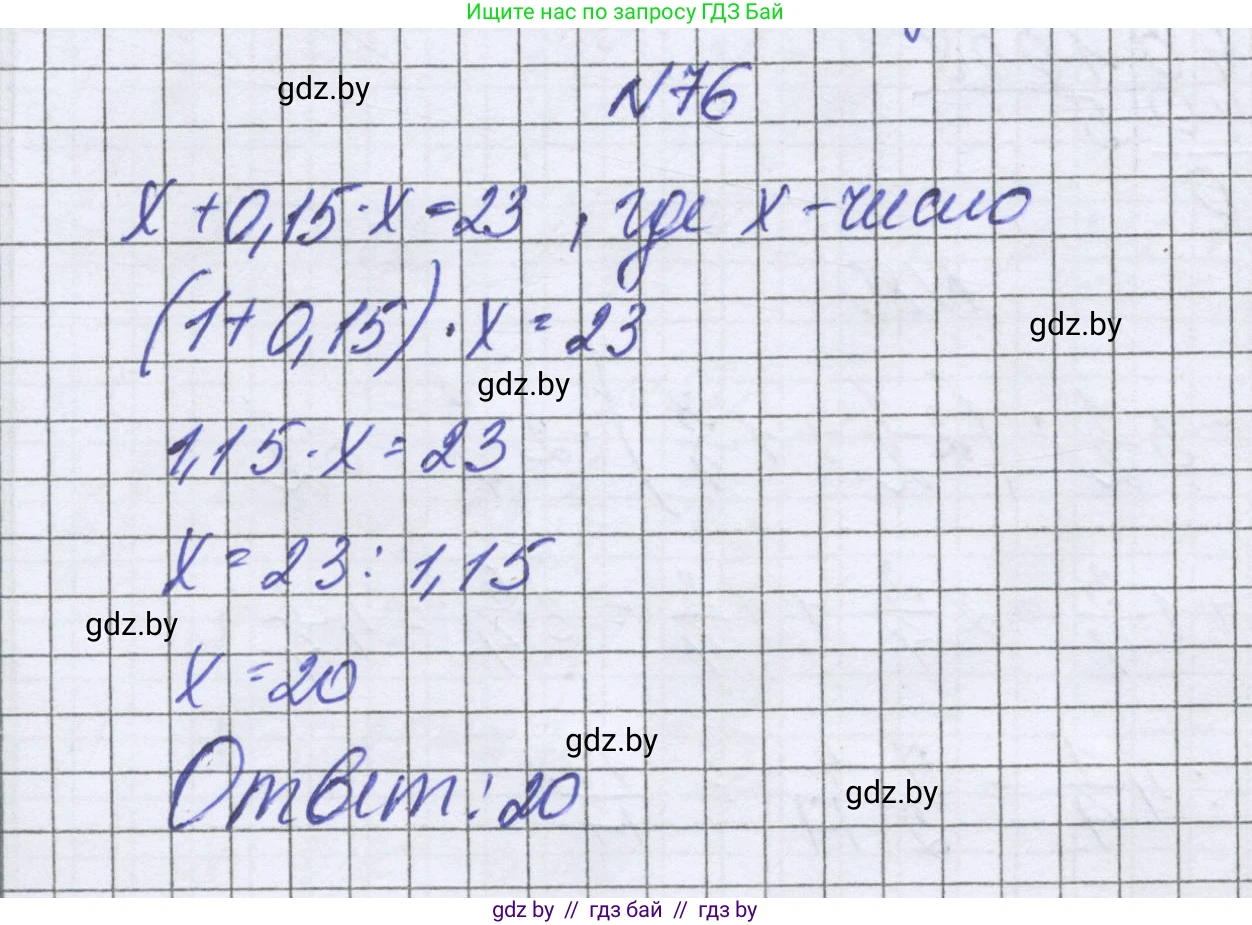 Ищите нас по запросу ГДЗ Бай
gdz.by
№76
x + 0,15 · x = 23 , где x - число
(1 + 0,15) · x = 23
gdz.by
gdz.by
1,15 · x = 23
x = 23 : 1,15
gdz.by
x = 20
gdz.by
Ответ: 20
gdz.by
gdz by // гдз бай // гдз by